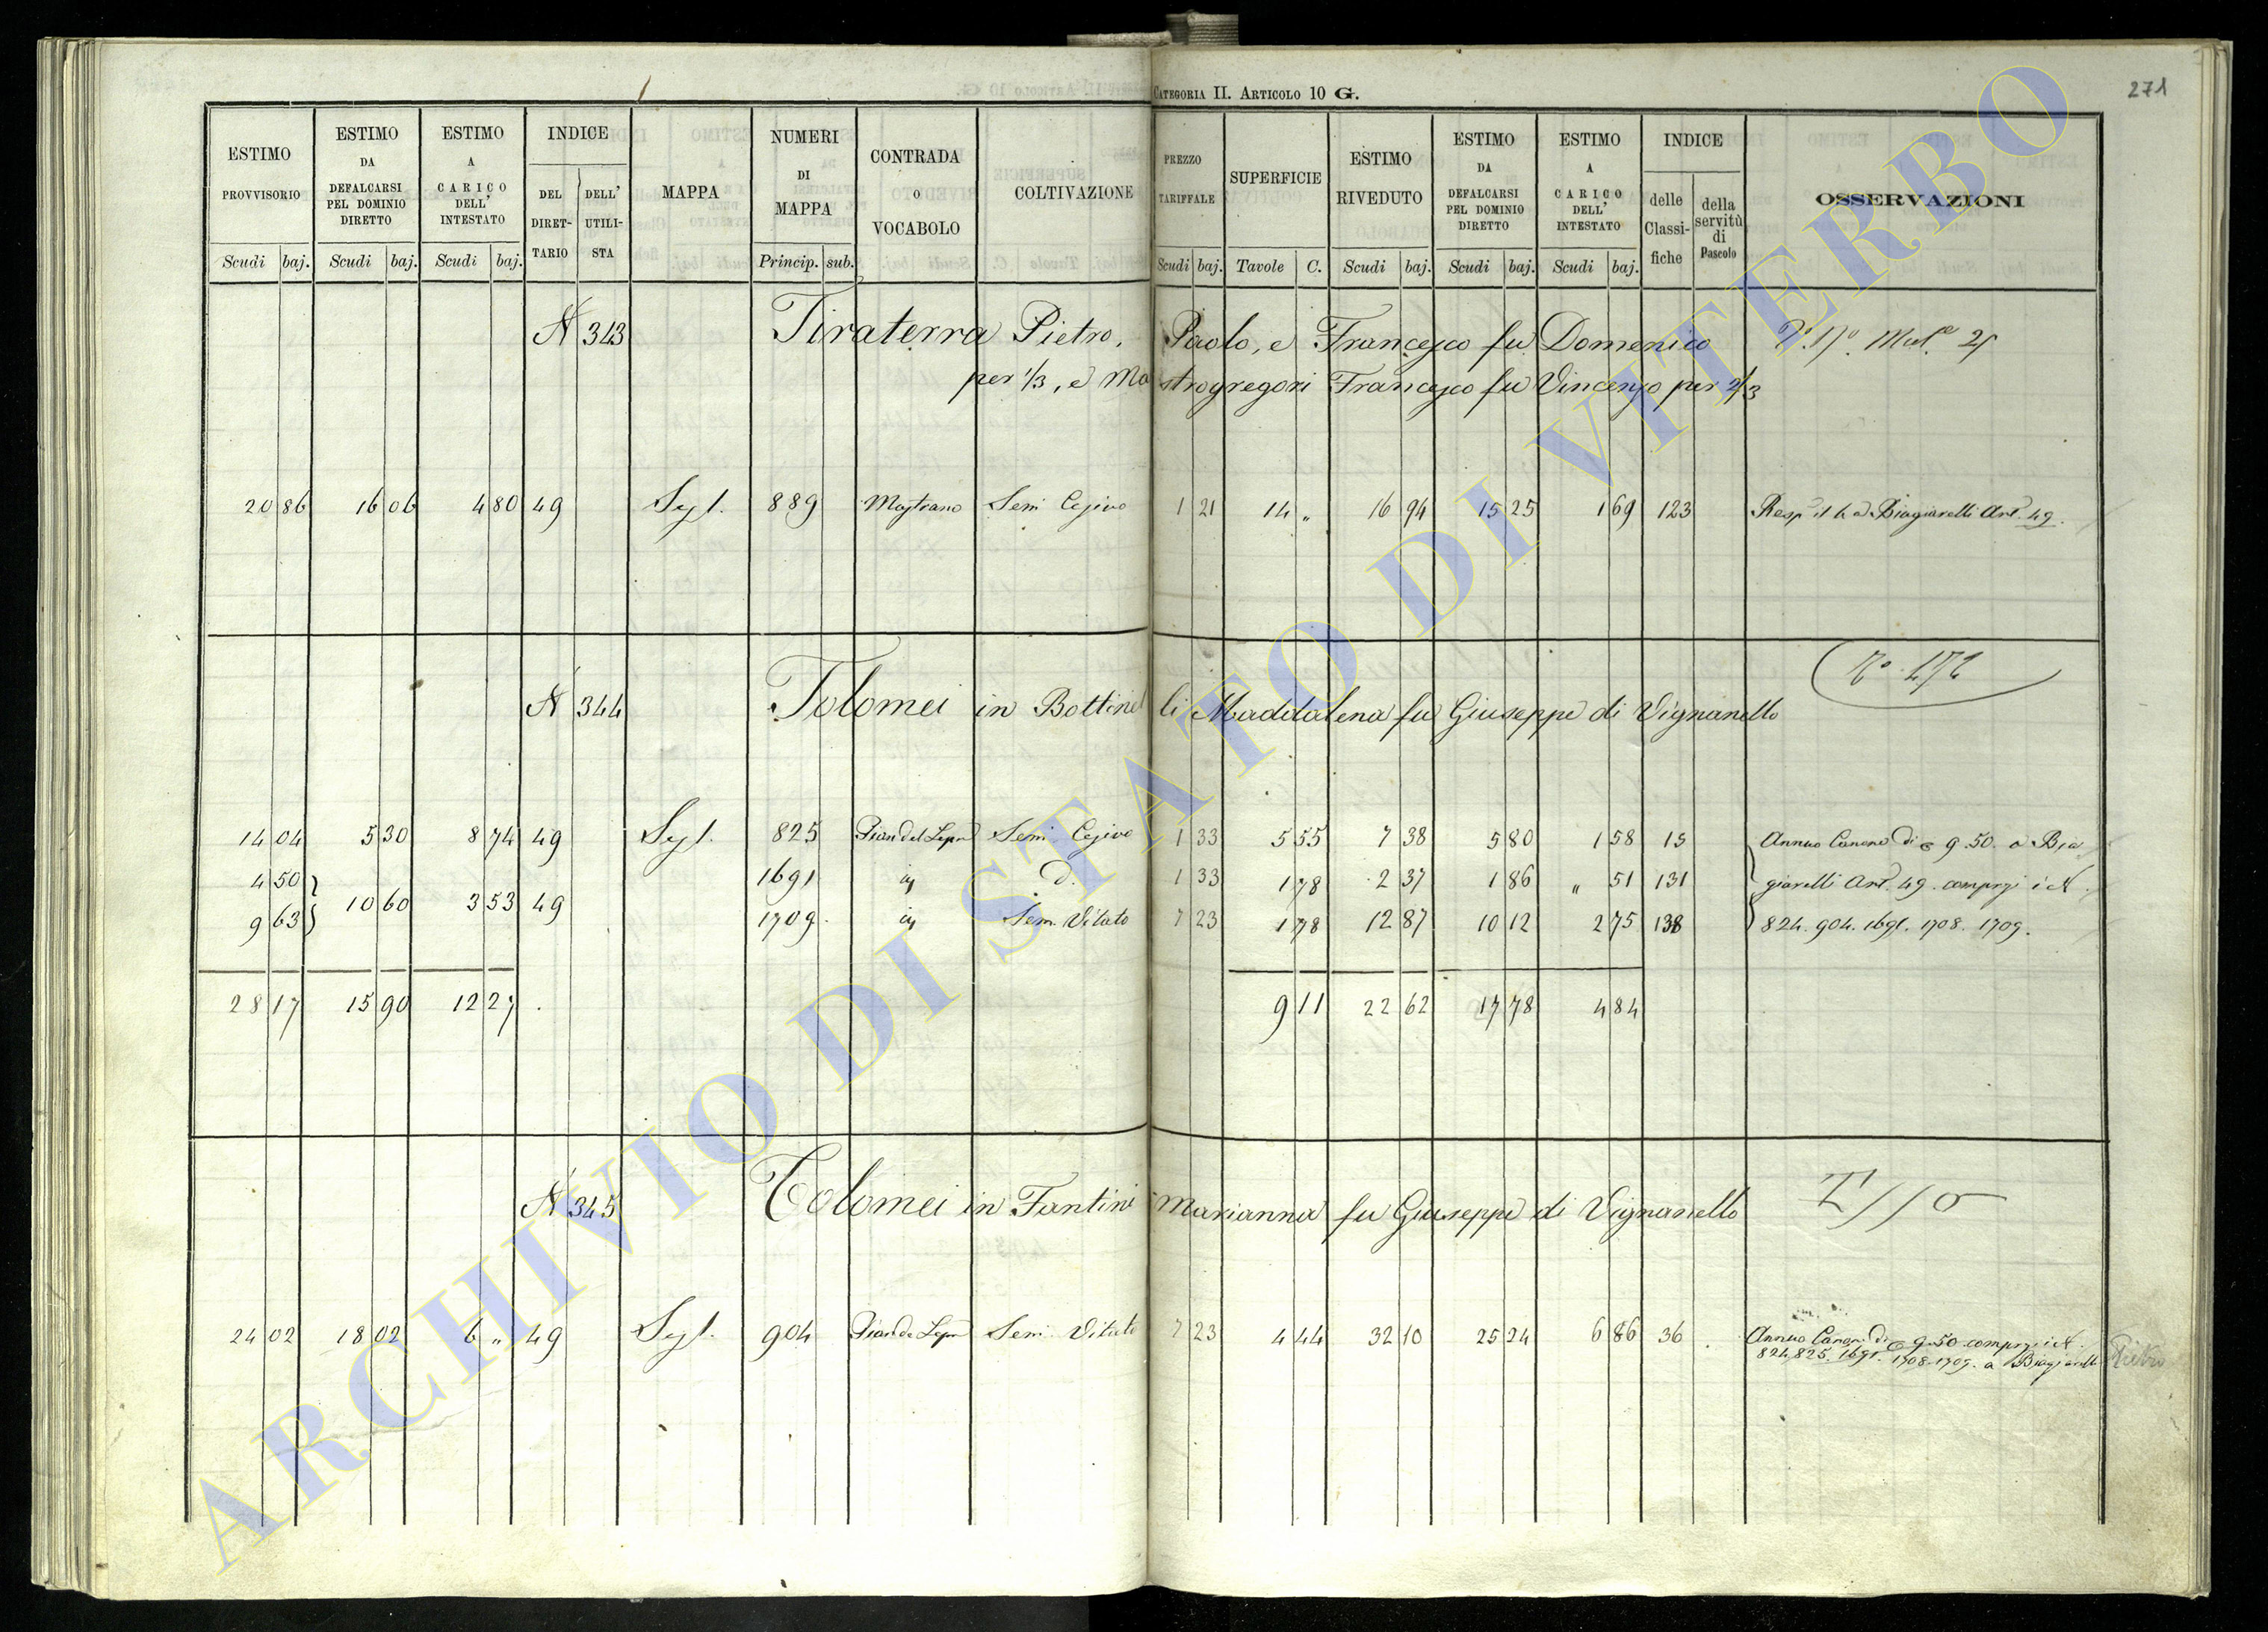 CATEGORIA II. ARTICOLO 10 G.
271
ESTIMO PROVVISORIO Scudi baj.
ESTIMO DA DEFALCARSI PEL DOMINIO DIRETTO Scudi baj.
ESTIMO A CARICO DELL' INTESTATO Scudi baj.
INDICE DEL DIRETTARIO DELL' UTILISTA
MAPPA
NUMERI DI MAPPA Princip. sub.
CONTRADA O VOCABOLO
COLTIVAZIONE
PREZZO TARIFFALE Scudi baj.
SUPERFICIE Tavole C.
ESTIMO RIVEDUTO Scudi baj.
ESTIMO DA DEFALCARSI PEL DOMINIO DIRETTO Scudi baj.
ESTIMO A CARICO DELL' INTESTATO Scudi baj.
INDICE delle Classifiche della servitù di Pascolo
OSSERVAZIONI
N 343 Tiraterra Pietro, Paolo, e Francesco fu Domenico
per 1/3, e Mastrogregori Francesco fu Vincenzo per 2/3
20 86 16 06 4 80 49 889 Mastrano Sem Cesivo 1 21 14 „ 16 94 15 25 1 69 123 Biagiarelli Art. 49.
N 344 Tolomei in Bottinelli Maddalena fu Giuseppe di Vignanello
14 04 5 30 8 74 49 825 Sem. Cesivo 1 33 5 55 7 38 5 80 1 58 15 Annuo Canone di 9.50. a Bia
4 50 1691 d. 1 33 1 78 2 37 1 86 „ 51 131 giarelli Art. 49. i N.
9 63 10 60 3 53 49 1709. Sem. Vitato 7 23 1 78 12 87 10 12 2 75 138 824. 904. 1691. 1708. 1709.
28 17 15 90 12 27 9 11 22 62 17 78 4 84
N 345 Tolomei in Fantini Marianna fu Giuseppe di Vignanello
24 02 18 02 6 „ 49 904 Sem. Vitato 7 23 4 44 32 10 25 24 6 86 36 Annuo Canone di 9.50 i N.
824. 825. 1691. 1708. 1709. a Biagiarelli Pietro
ARCHIVIO DI STATO DI VITERBO